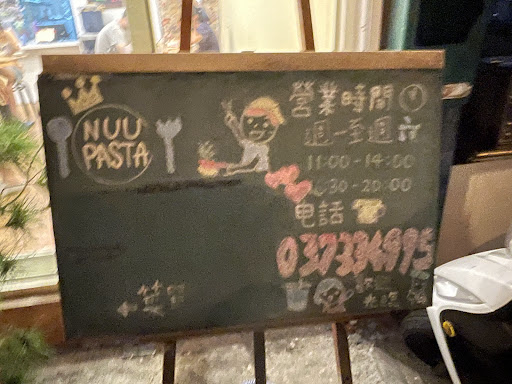 NUU
PASTA
營業時間
週一至週六
11:00-14:00
:30-20:00
电話
037334995